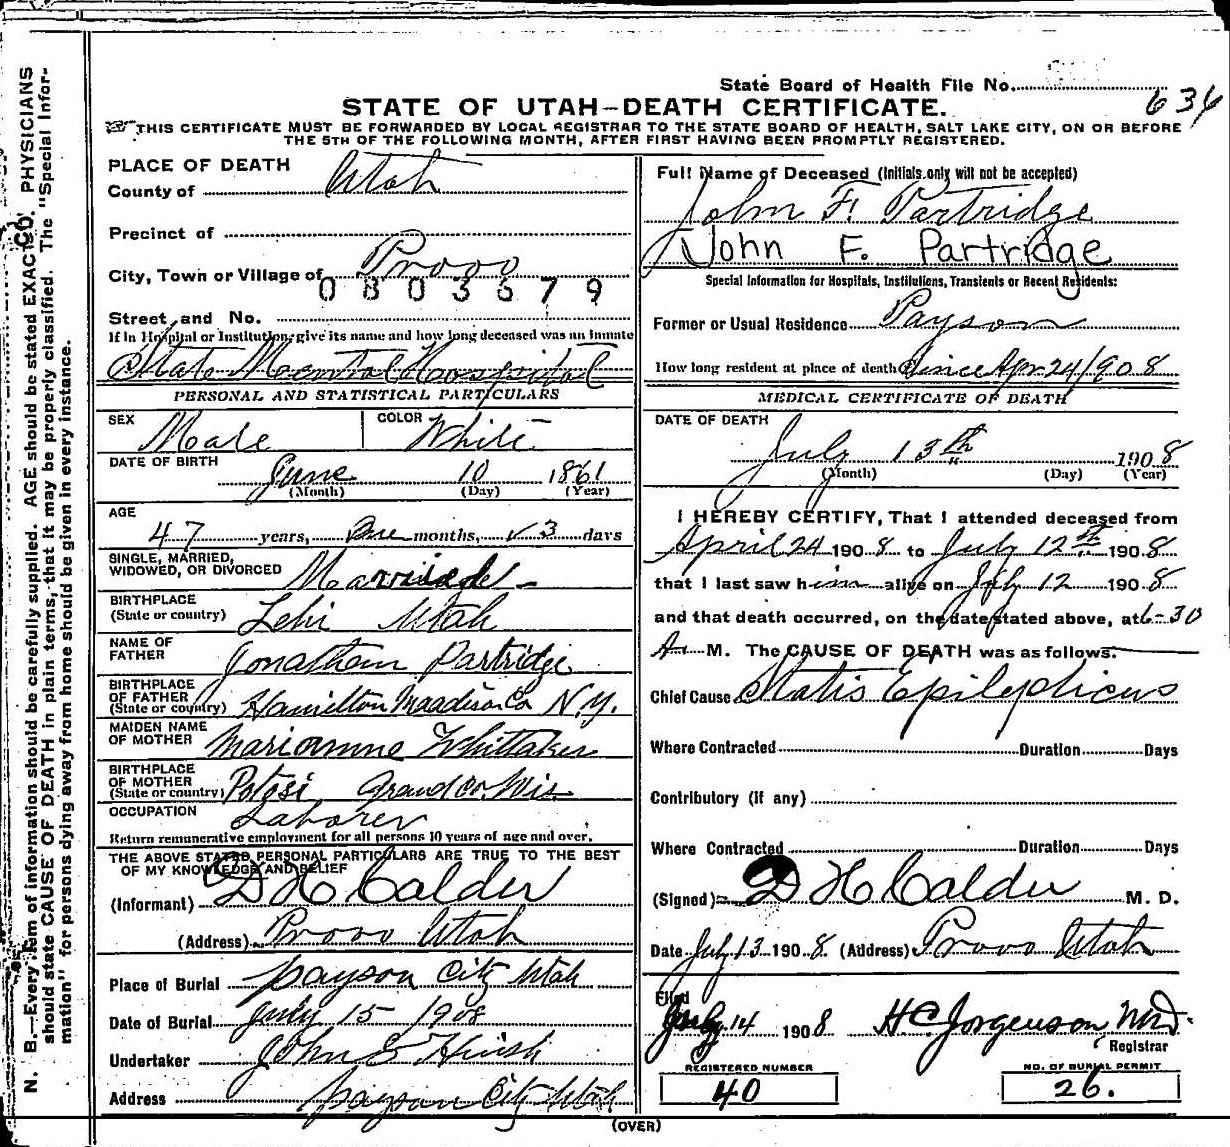 State Board of Health File No.
636
STATE OF UTAH—DEATH CERTIFICATE.
THIS CERTIFICATE MUST BE FORWARDED BY LOCAL REGISTRAR TO THE STATE BOARD OF HEALTH, SALT LAKE CITY, ON OR BEFORE
THE 5TH OF THE FOLLOWING MONTH, AFTER FIRST HAVING BEEN PROMPTLY REGISTERED.
PLACE OF DEATH
County of Utah
Precinct of
City, Town or Village of Provo
0803679
Street and No.
If in Hospital or Institution, give its name and how long deceased was an inmate
State Mental Hospital
PERSONAL AND STATISTICAL PARTICULARS
SEX Male COLOR White
DATE OF BIRTH June 10 1861
(Month) (Day) (Year)
AGE
47 years, One months, 3 days
SINGLE, MARRIED,
WIDOWED, OR DIVORCED Married
BIRTHPLACE
(State or country) Lehi Utah
NAME OF
FATHER Jonathan Partridge
BIRTHPLACE
OF FATHER
(State or country) Hamilton Maadison Co N.Y.
MAIDEN NAME
OF MOTHER Marionne Whittaker
BIRTHPLACE
OF MOTHER
(State or country) Potosi Grand Co. Wis
OCCUPATION Laborer
Return remunerative employment for all persons 10 years of age and over.
THE ABOVE STATED PERSONAL PARTICULARS ARE TRUE TO THE BEST
OF MY KNOWLEDGE AND BELIEF
(Informant) D H Calder
(Address) Provo Utah
Place of Burial Payson City Utah
Date of Burial July 15 1908
Undertaker John S
Address Payson City Utah
Full Name of Deceased (Initials only will not be accepted)
John F. Partridge
John F. Partridge
Special Information for Hospitals, Institutions, Transients or Recent Residents:
Former or Usual Residence Payson
How long resident at place of death Since Apr 24/908
MEDICAL CERTIFICATE OF DEATH
DATE OF DEATH
July 13th 1908
(Month) (Day) (Year)
I HEREBY CERTIFY, That I attended deceased from
April 24 1908 to July 12th 1908
that I last saw him alive on July 12 1908
and that death occurred, on the date stated above, at 6-30
A M. The CAUSE OF DEATH was as follows:
Chief Cause Statis Epilepticus
Where Contracted Duration Days
Contributory (if any)
Where Contracted Duration Days
(Signed) D H Calder M. D.
Date July 13 1908 (Address) Provo Utah
Filed
July 14 1908 HC Jorgenson MD.
Registrar
REGISTERED NUMBER
40
NO. OF BURIAL PERMIT
26.
(OVER)
N. B.—Every item of information should be carefully supplied. AGE should be stated EXACTLY. PHYSICIANS
should state CAUSE OF DEATH in plain terms, that it may be properly classified. The "Special Infor-
mation" for persons dying away from home should be given in every instance.